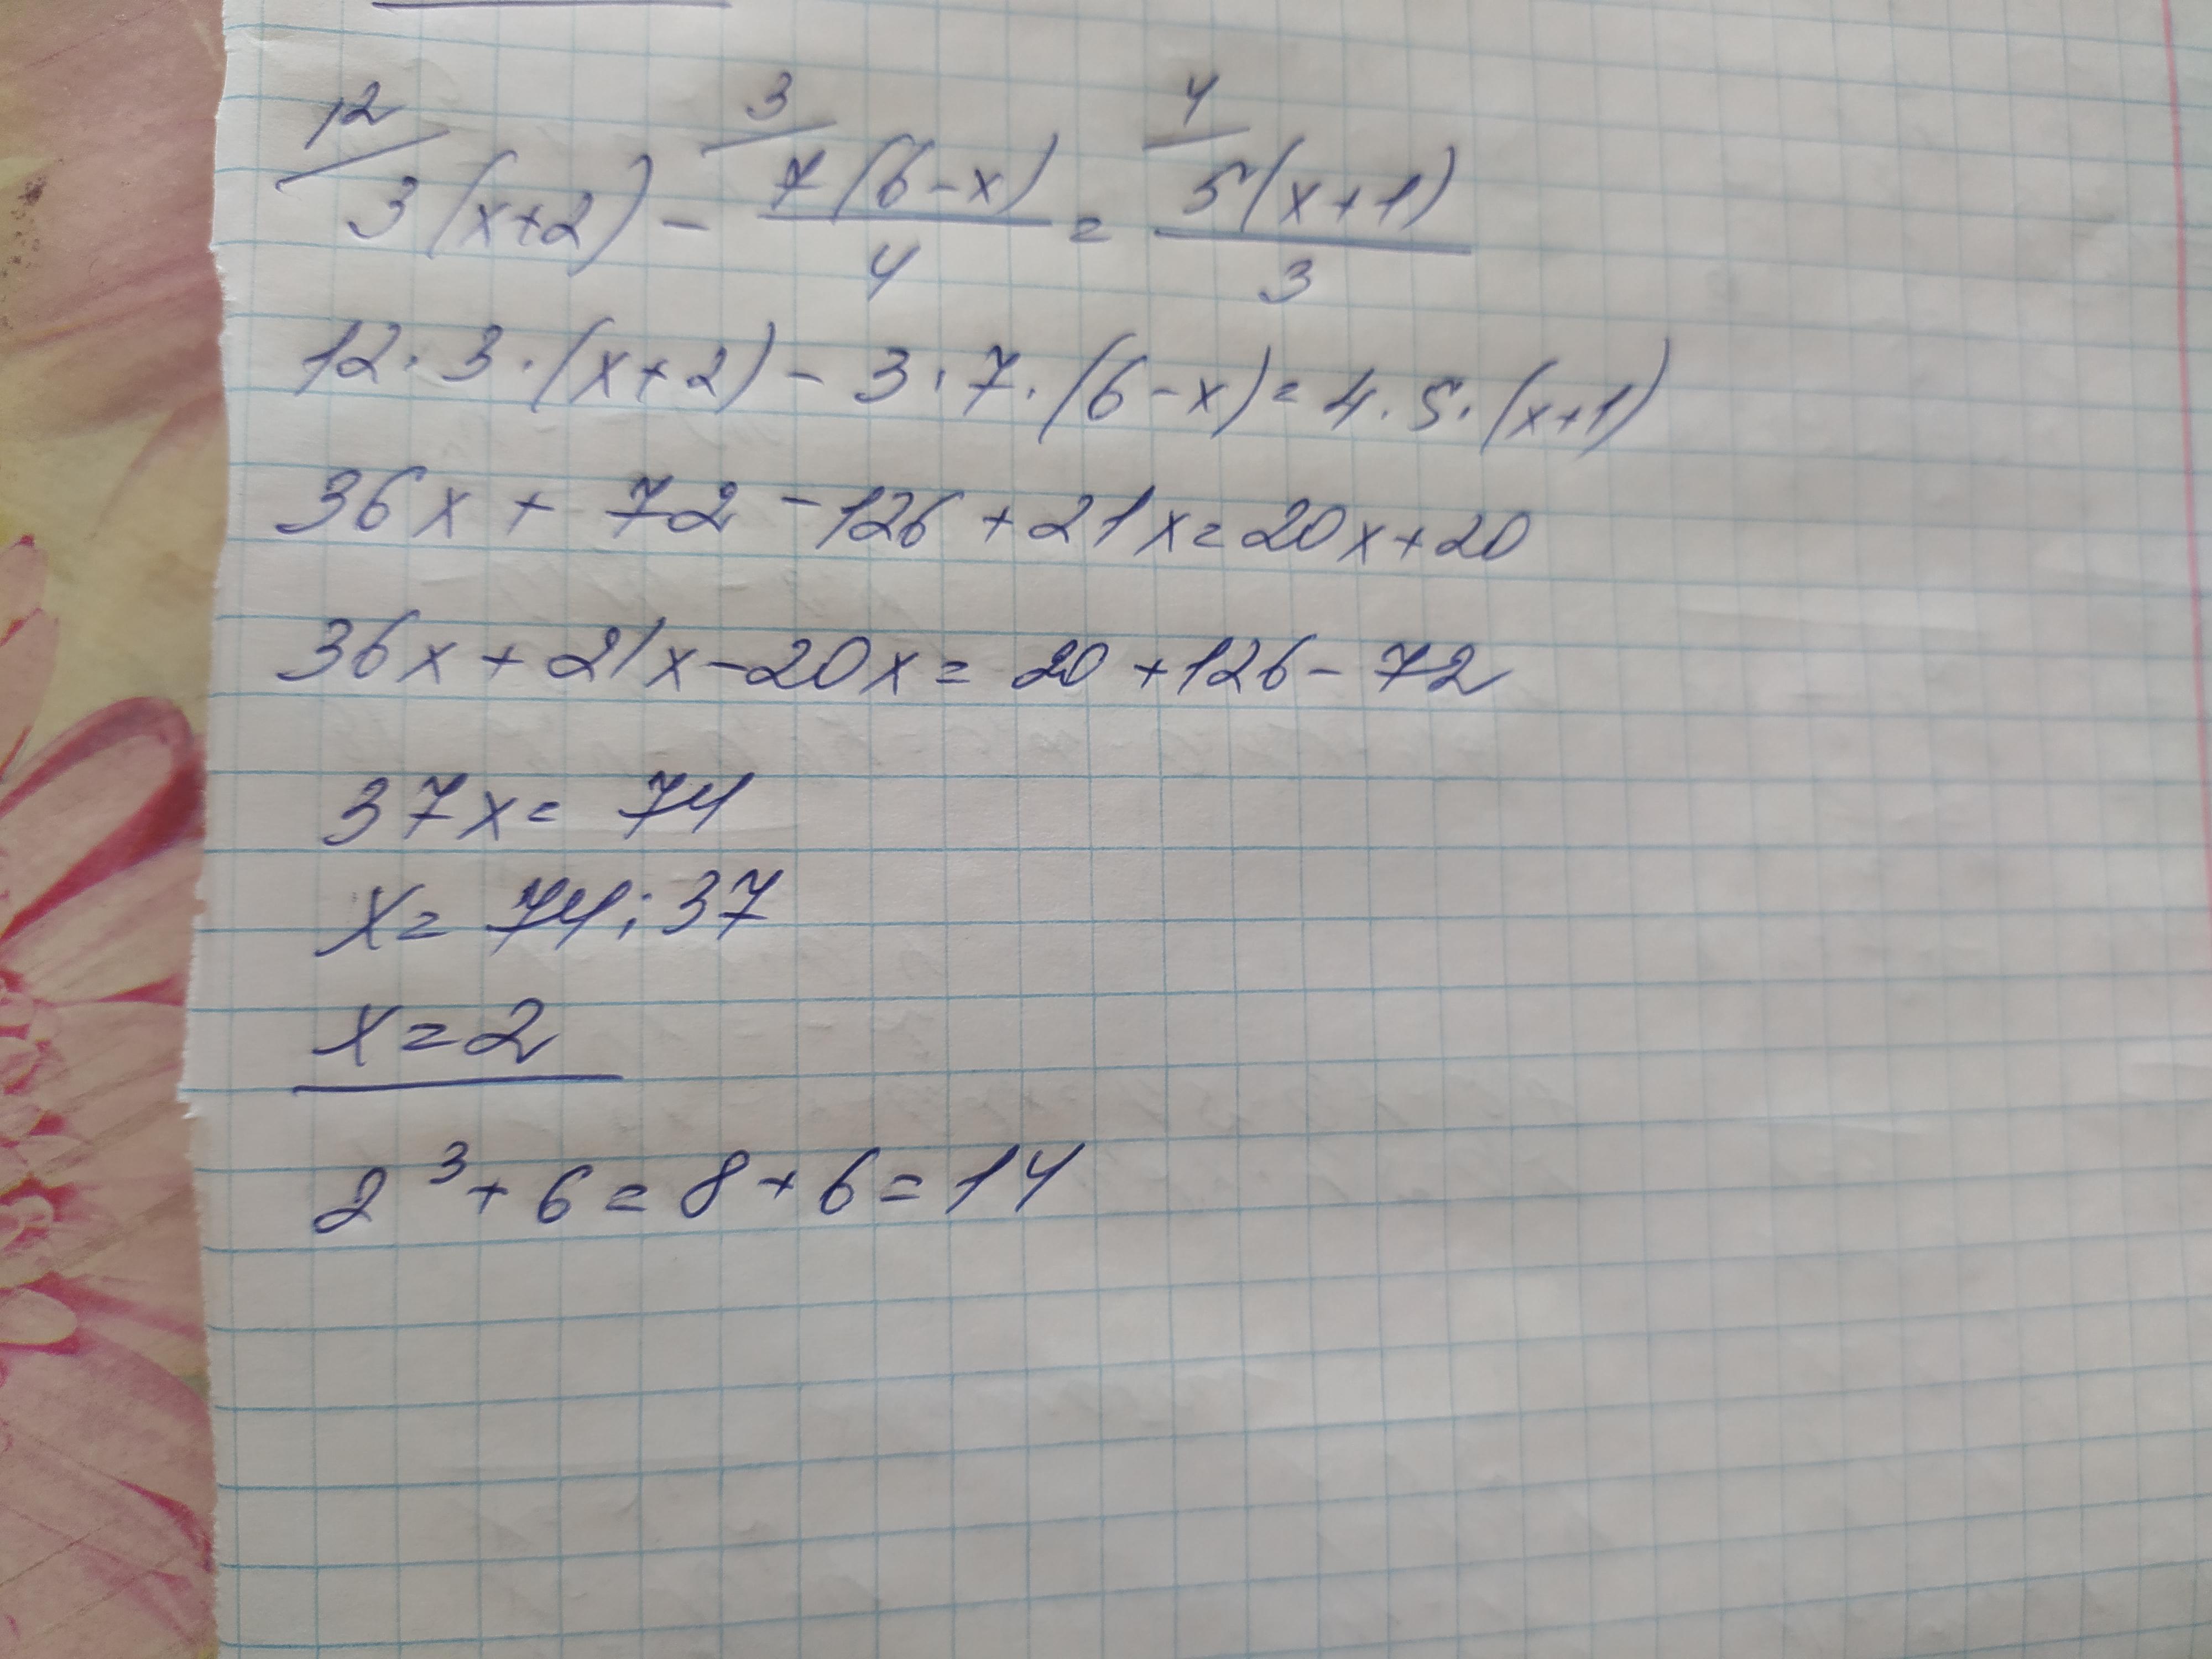 12/ 3(x+2) - 3/ 7(6-x)/4 = 4/ 5(x+1)/3
12·3·(x+2)-3·7·(6-x)=4·5·(x+1)
36x+72-126+21x=20x+20
36x+21x-20x=20+126-72
37x=74
x=74:37
x=2
2³+6=8+6=14